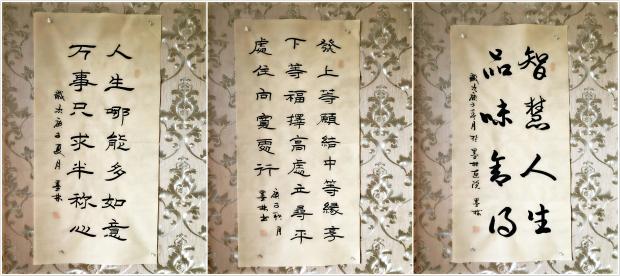 人生哪能多如意
万事只求半称心
歲次庚子夏月 墨林
發上等願結中等緣享
下等福擇高處立尋平
處住向寬處行
庚子秋月
墨林书
智慧人生
品味舍得
歲次庚子 月於墨林 墨林